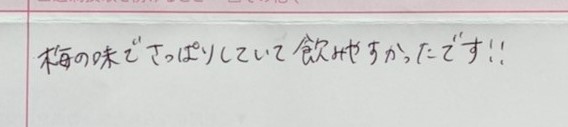 梅の味でさっぱりしていて飲みやすかったです!!